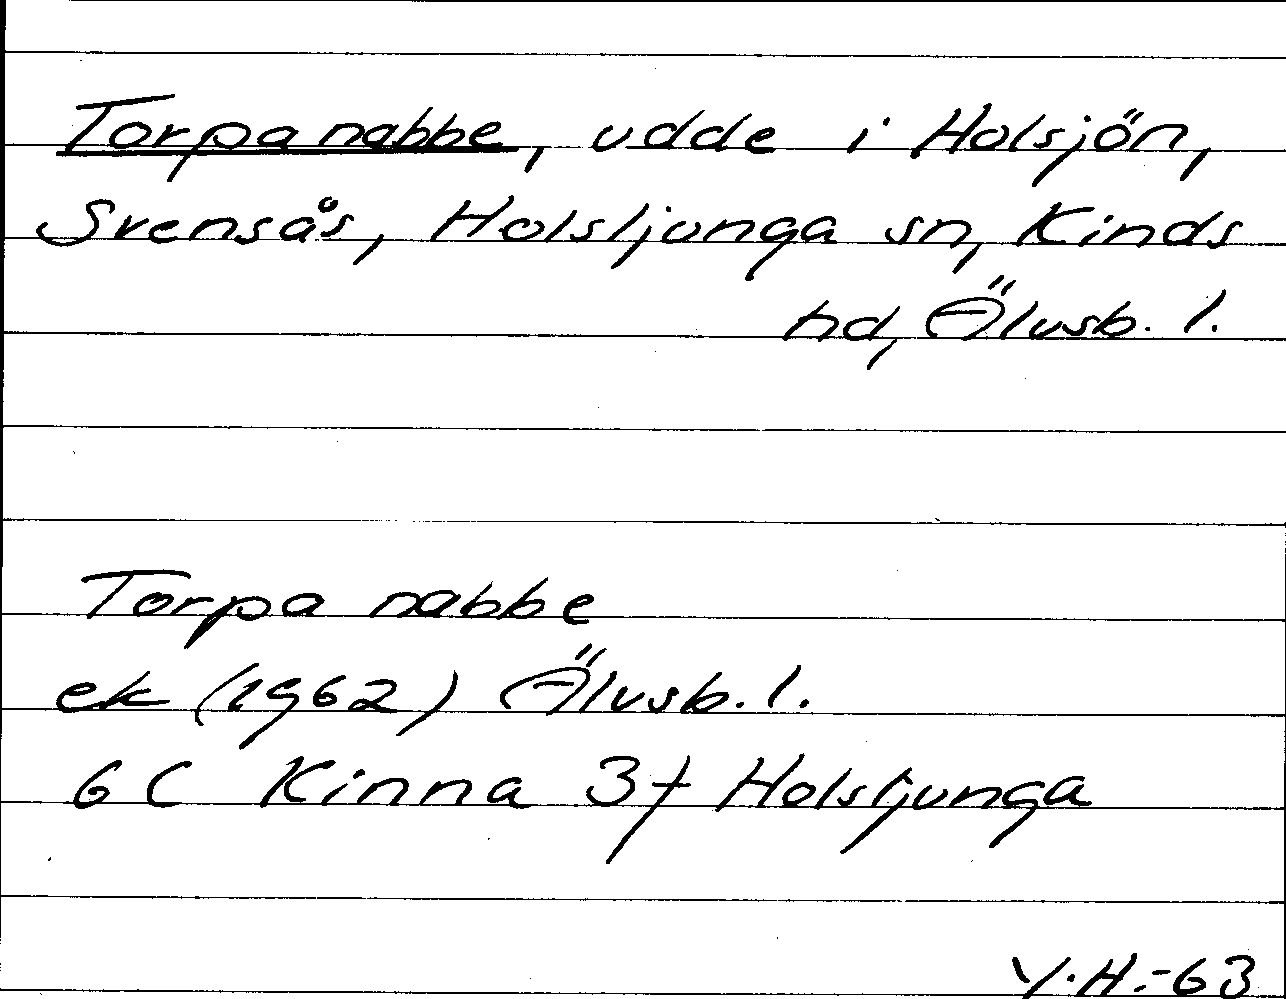 Torpanabbe, udde i Holsjön,
Svensås, Holsljunga sn, Kinds
hd, Älvsb. l.
Torpa nabbe
ek (1962) Älvsb. l.
6 C Kinna 3f Holsljunga
Y.H.-63